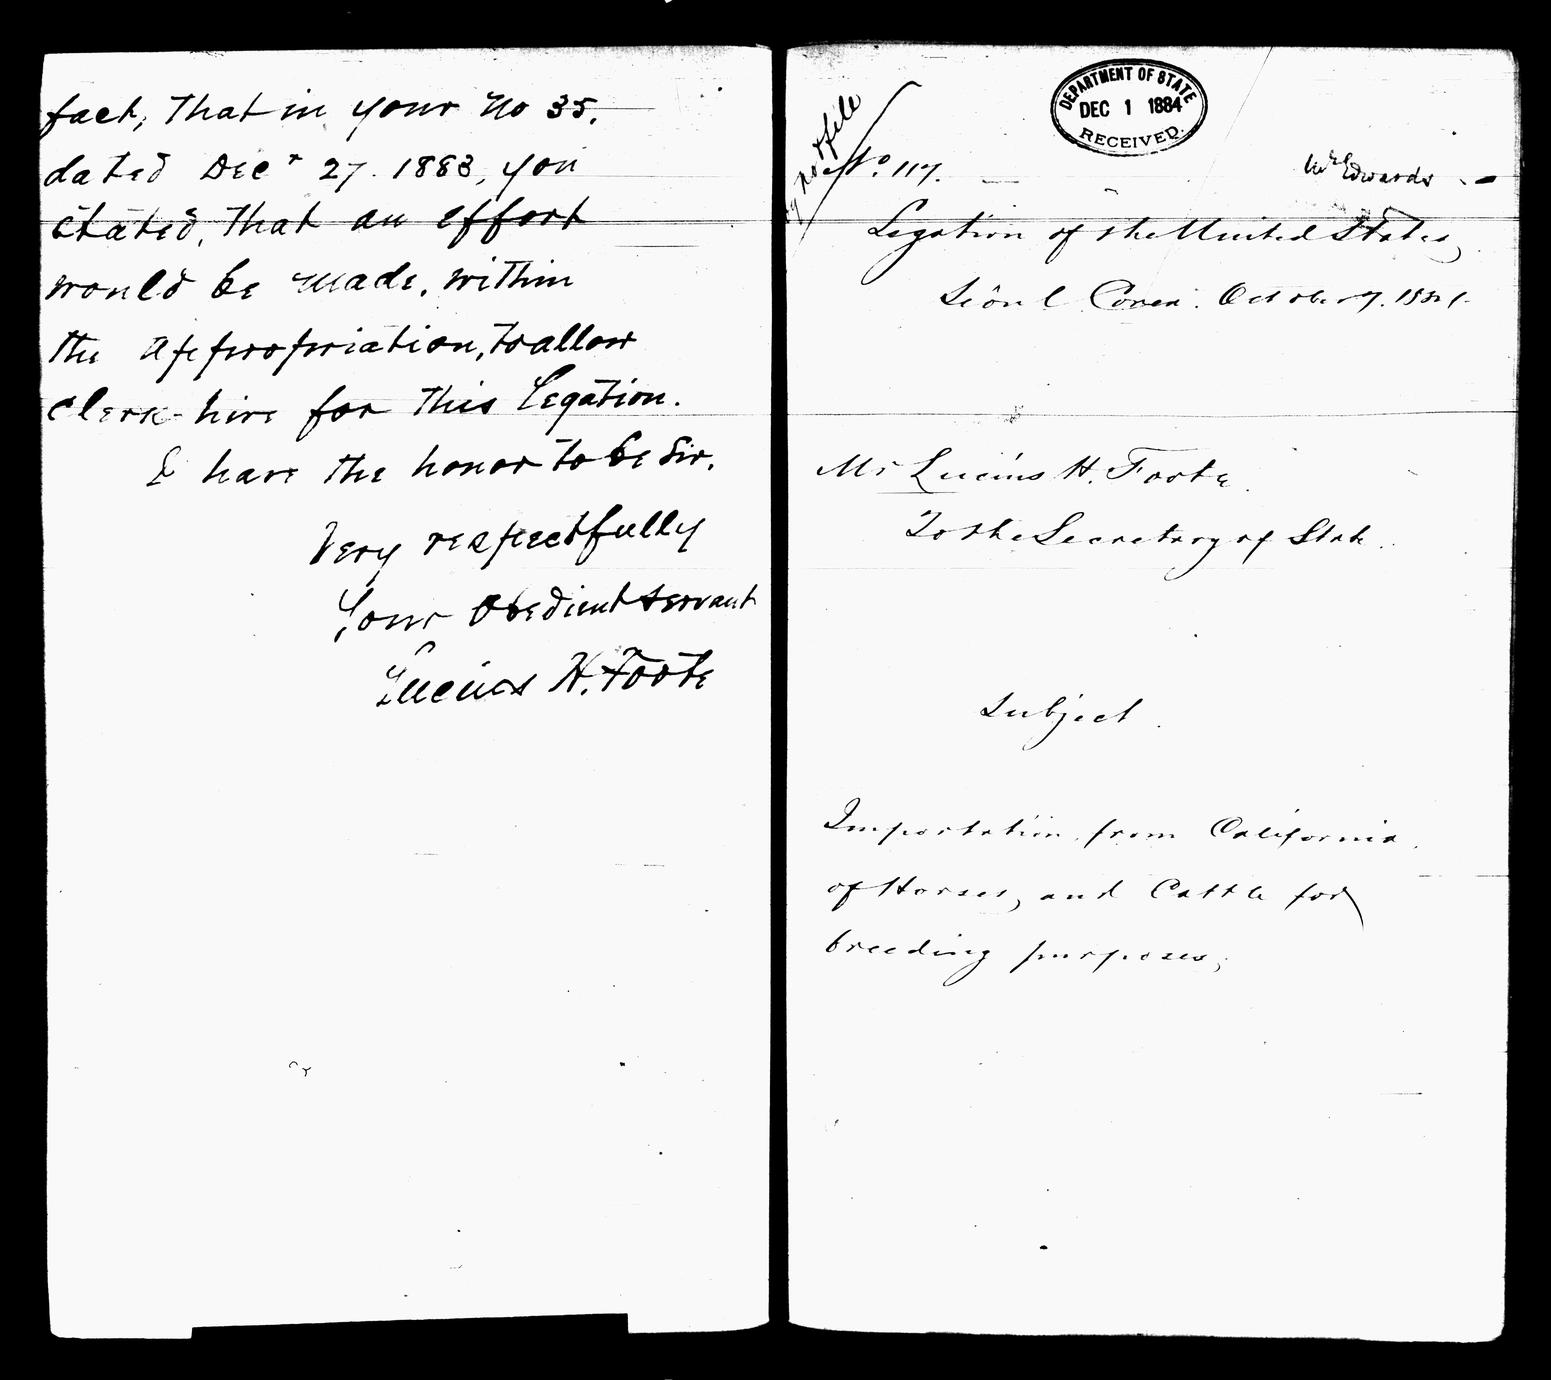 fact, that in your No 35,
dated Decr 27. 1883, you
stated, that an effort
would be made, within
the appropriation, to allow
clerk-hire for this Legation.
I have the honor to be Sir,
Very respectfully
Your obedient servant
Lucius H. Foote
DEPARTMENT OF STATE
DEC 1 1884
RECEIVED.
not file
No. 117.
Mr Edwards
Legation of the United States,
Seoul Corea. October 7. 1884.
Mr Lucius H. Foote.
To the Secretary of State.
Subject.
Importation, from California,
of Horses, and Cattle for
breeding purposes,